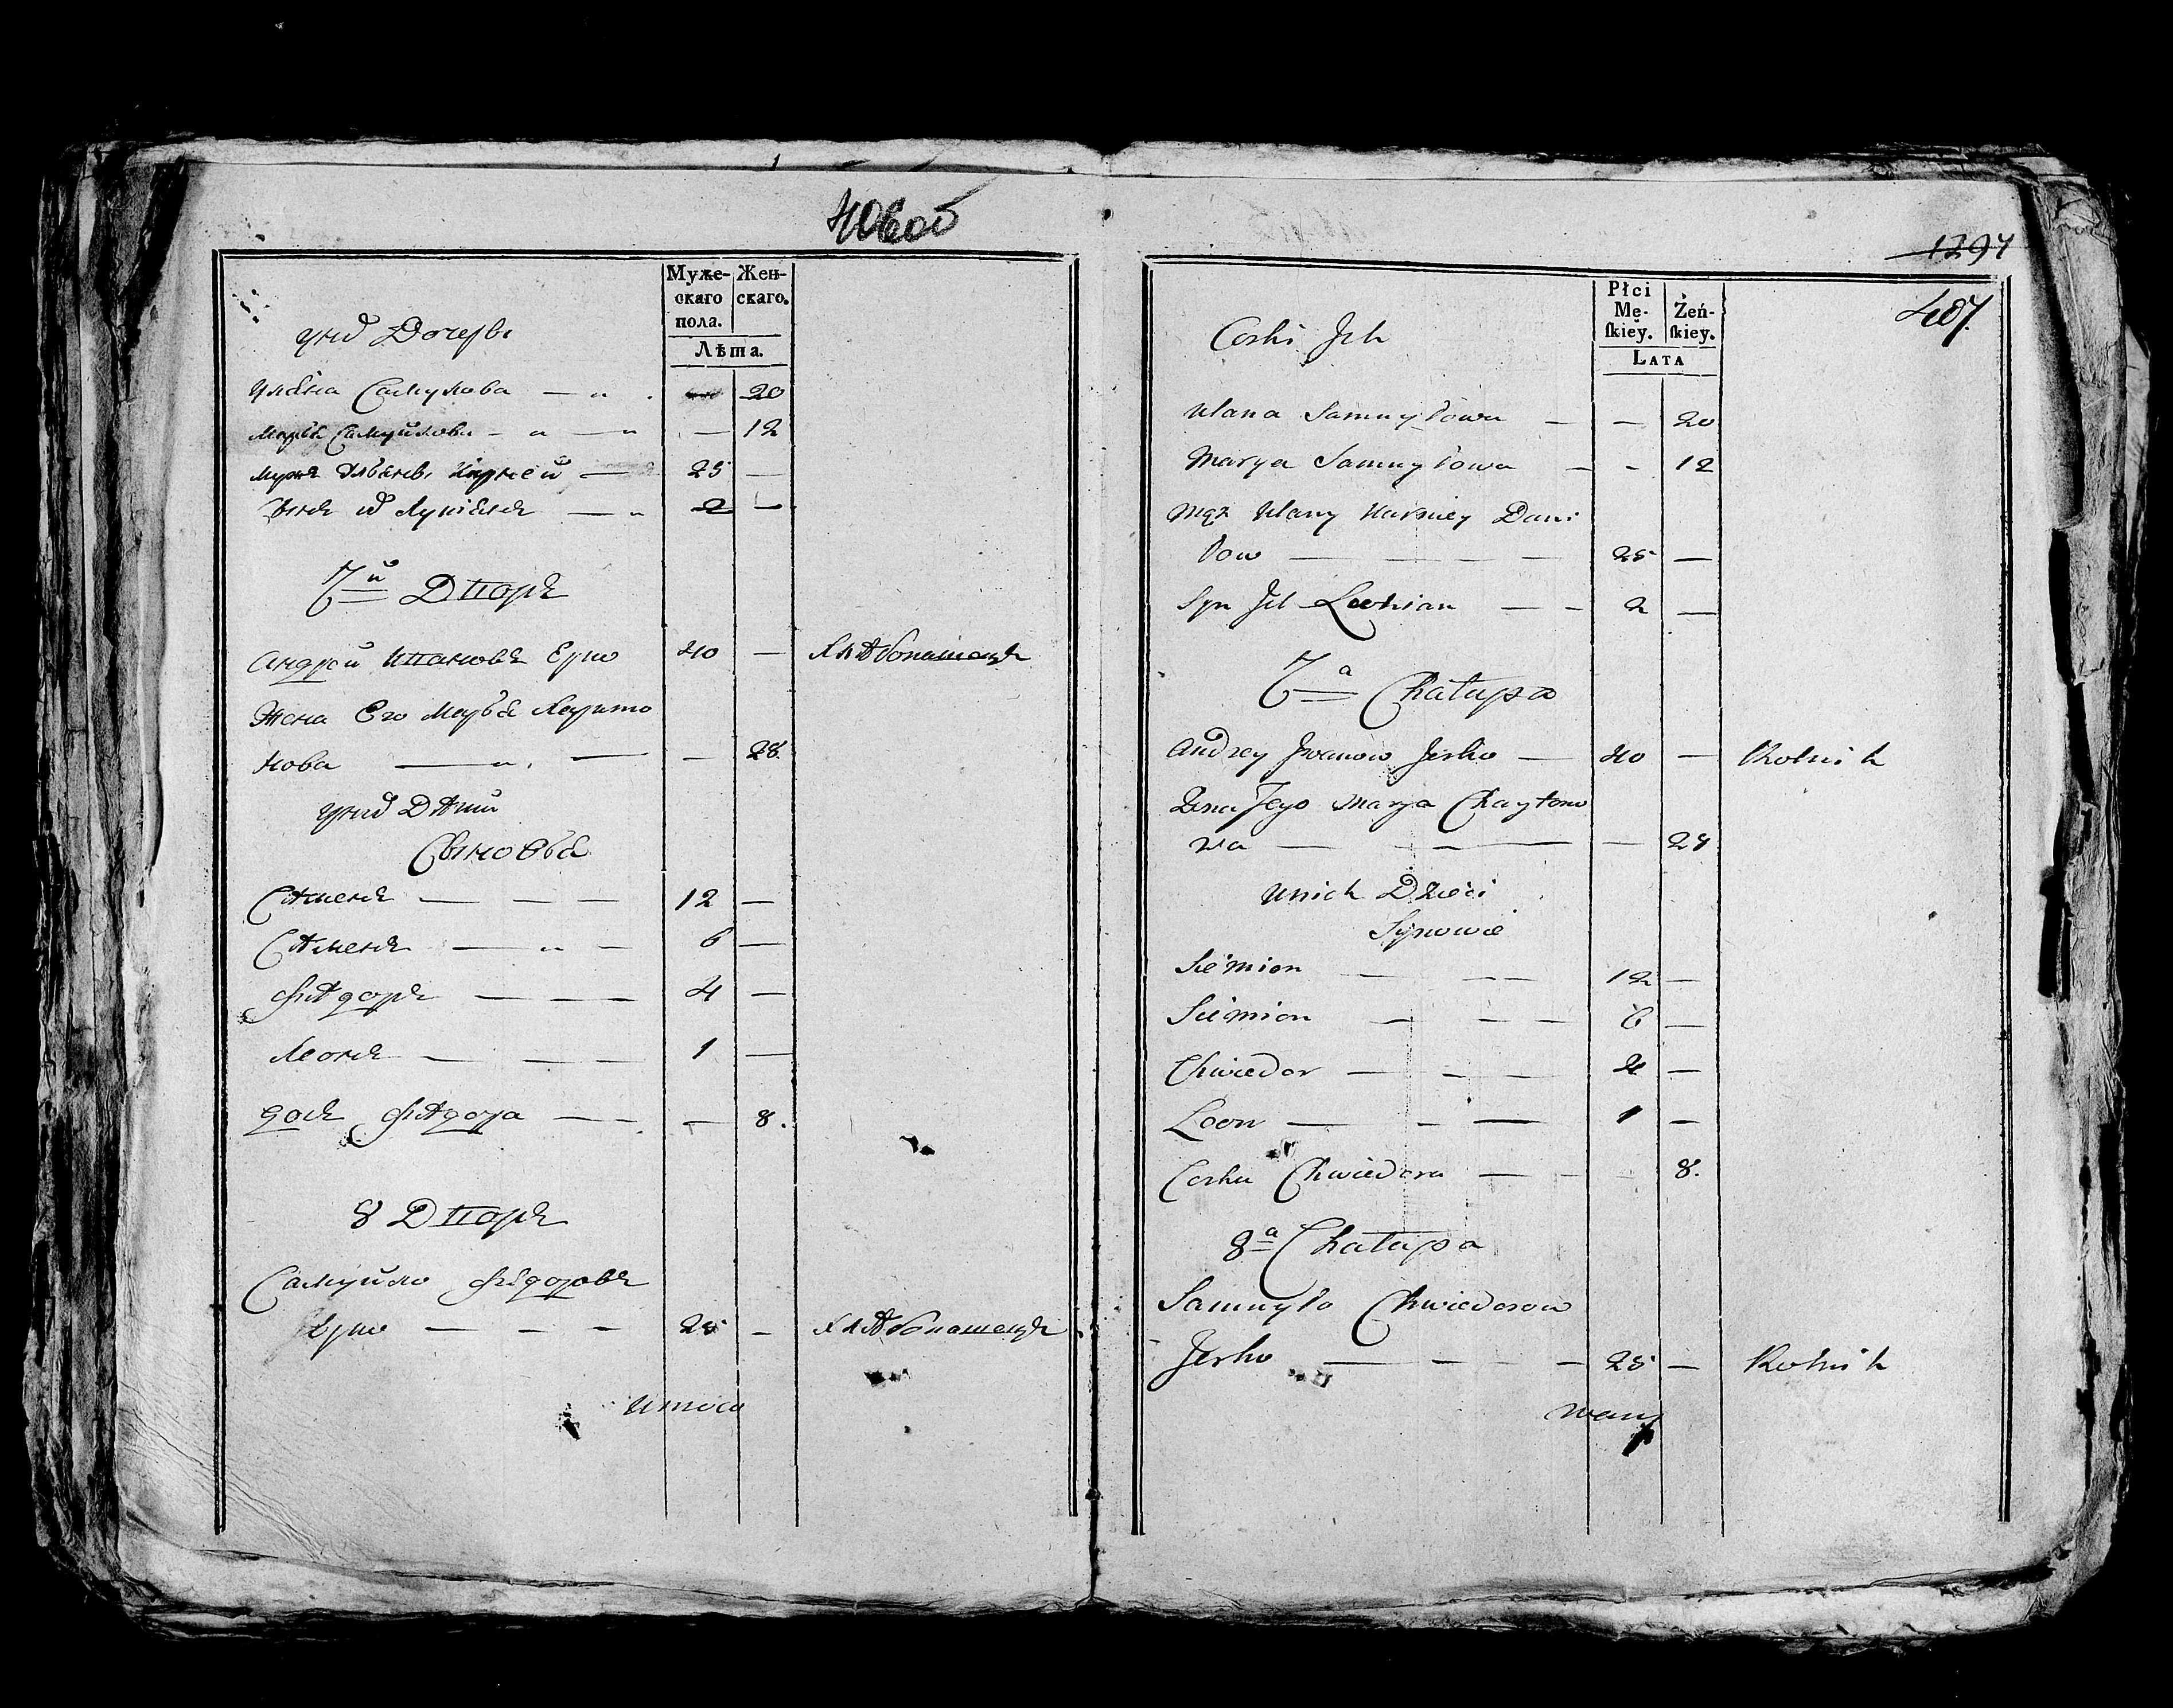 Новой
Муже-
скаго
пола.
Жен-
скаго.
Лѣта.
унй Дочерь
Уляна Самулова — — 20
Марья Самуйлова — — 12
Мужъ Ульянь Карней — 25 —
Сынъ Лукіянъ — 2 —
7й Дворъ
Андрей Ивановъ Ерко 40 — Хлѣбопашецъ
Жена Его Марья Харито
нова — — — 28.
унй Дѣти
Сыновья
Сѣменъ — — — 12 —
Сѣменъ — — 6 —
Фѣдоръ — — — 4 —
Леонъ — — — 1 —
дочь Фѣдора — — — 8.
8 Дворъ
Самуйло Фѣдоровъ
Ерко — — — 25 — Хлѣбопашецъ
1294
407.
Płci
Mę-
ſkiey.
Żeń-
ſkiey.
LATA
Corki Jch
Ulana Samuyłowa — — 20
Marya Samuyłowa — - 12
Mąz Ulany Karniey Dani
łow — — — — 25 —
Syn Jch Łukian — — 2 —
7a Chałupa
Andrey Jwanow Jerko — 40 — Rolnik
Zona Jego Marya Charytono
wa — — — — 28
Unich Dzieci
Synowie
Siemion — — — 12 —
Siemion — — — 6 —
Chwiedor — — — 4 —
Leon — — — 1 —
Corka Chwiedora — — — 8.
8a Chałupa
Samuyło Chwiedorow
Jerko — — — — 25 — Rolnik